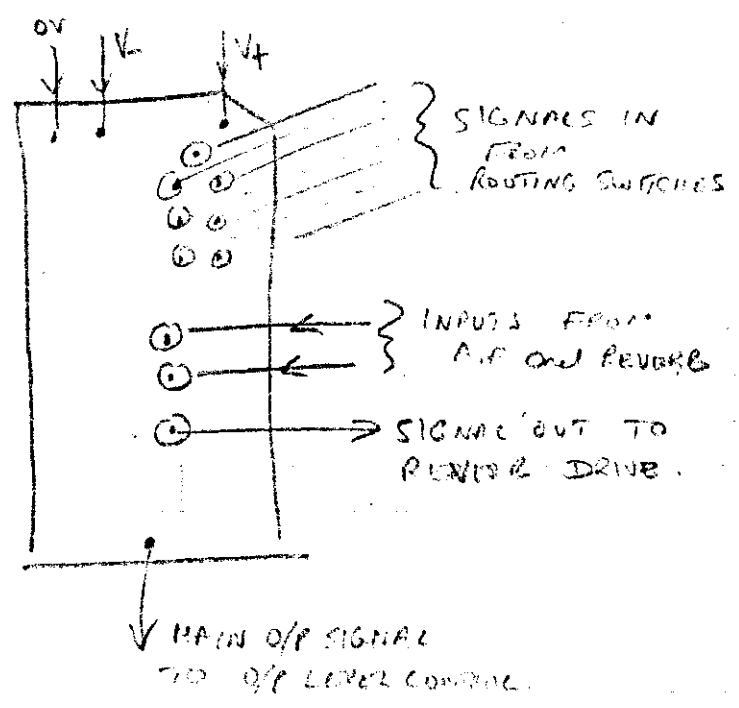 0V
V-
V+
SIGNALS IN
FROM
ROUTING SWITCHES
INPUTS FROM
A.F and REVERB
SIGNAL OUT TO
REVERB DRIVE.
MAIN O/P SIGNAL
TO O/P LEVEL CONTROL.